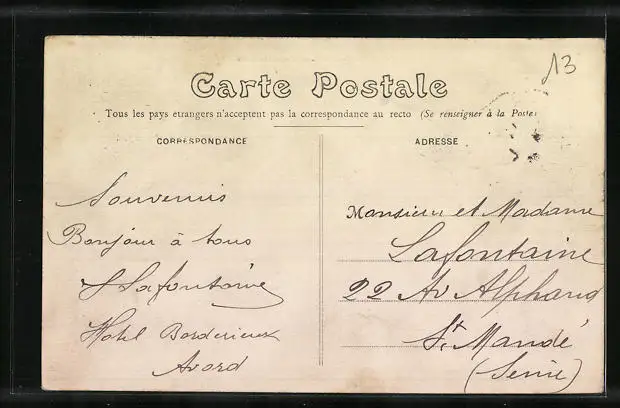 13
Carte Postale
Tous les pays etrangers n'acceptent pas la correspondance au recto (Se renseigner à la Poste)
CORRESPONDANCE
ADRESSE
Souvenirs
Bonjour à tous
Lafontaine
Hotel Borderieux
Avord
Monsieur et Madame
Lafontaine
22 Av Alphand
St Mandé
(Seine)